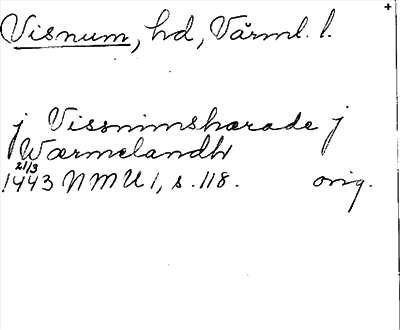 Visnum, hd, Värml. l.
j Vissnimshærade j
Wærmelandh
21/3
1443 NMU 1, s. 118. orig.